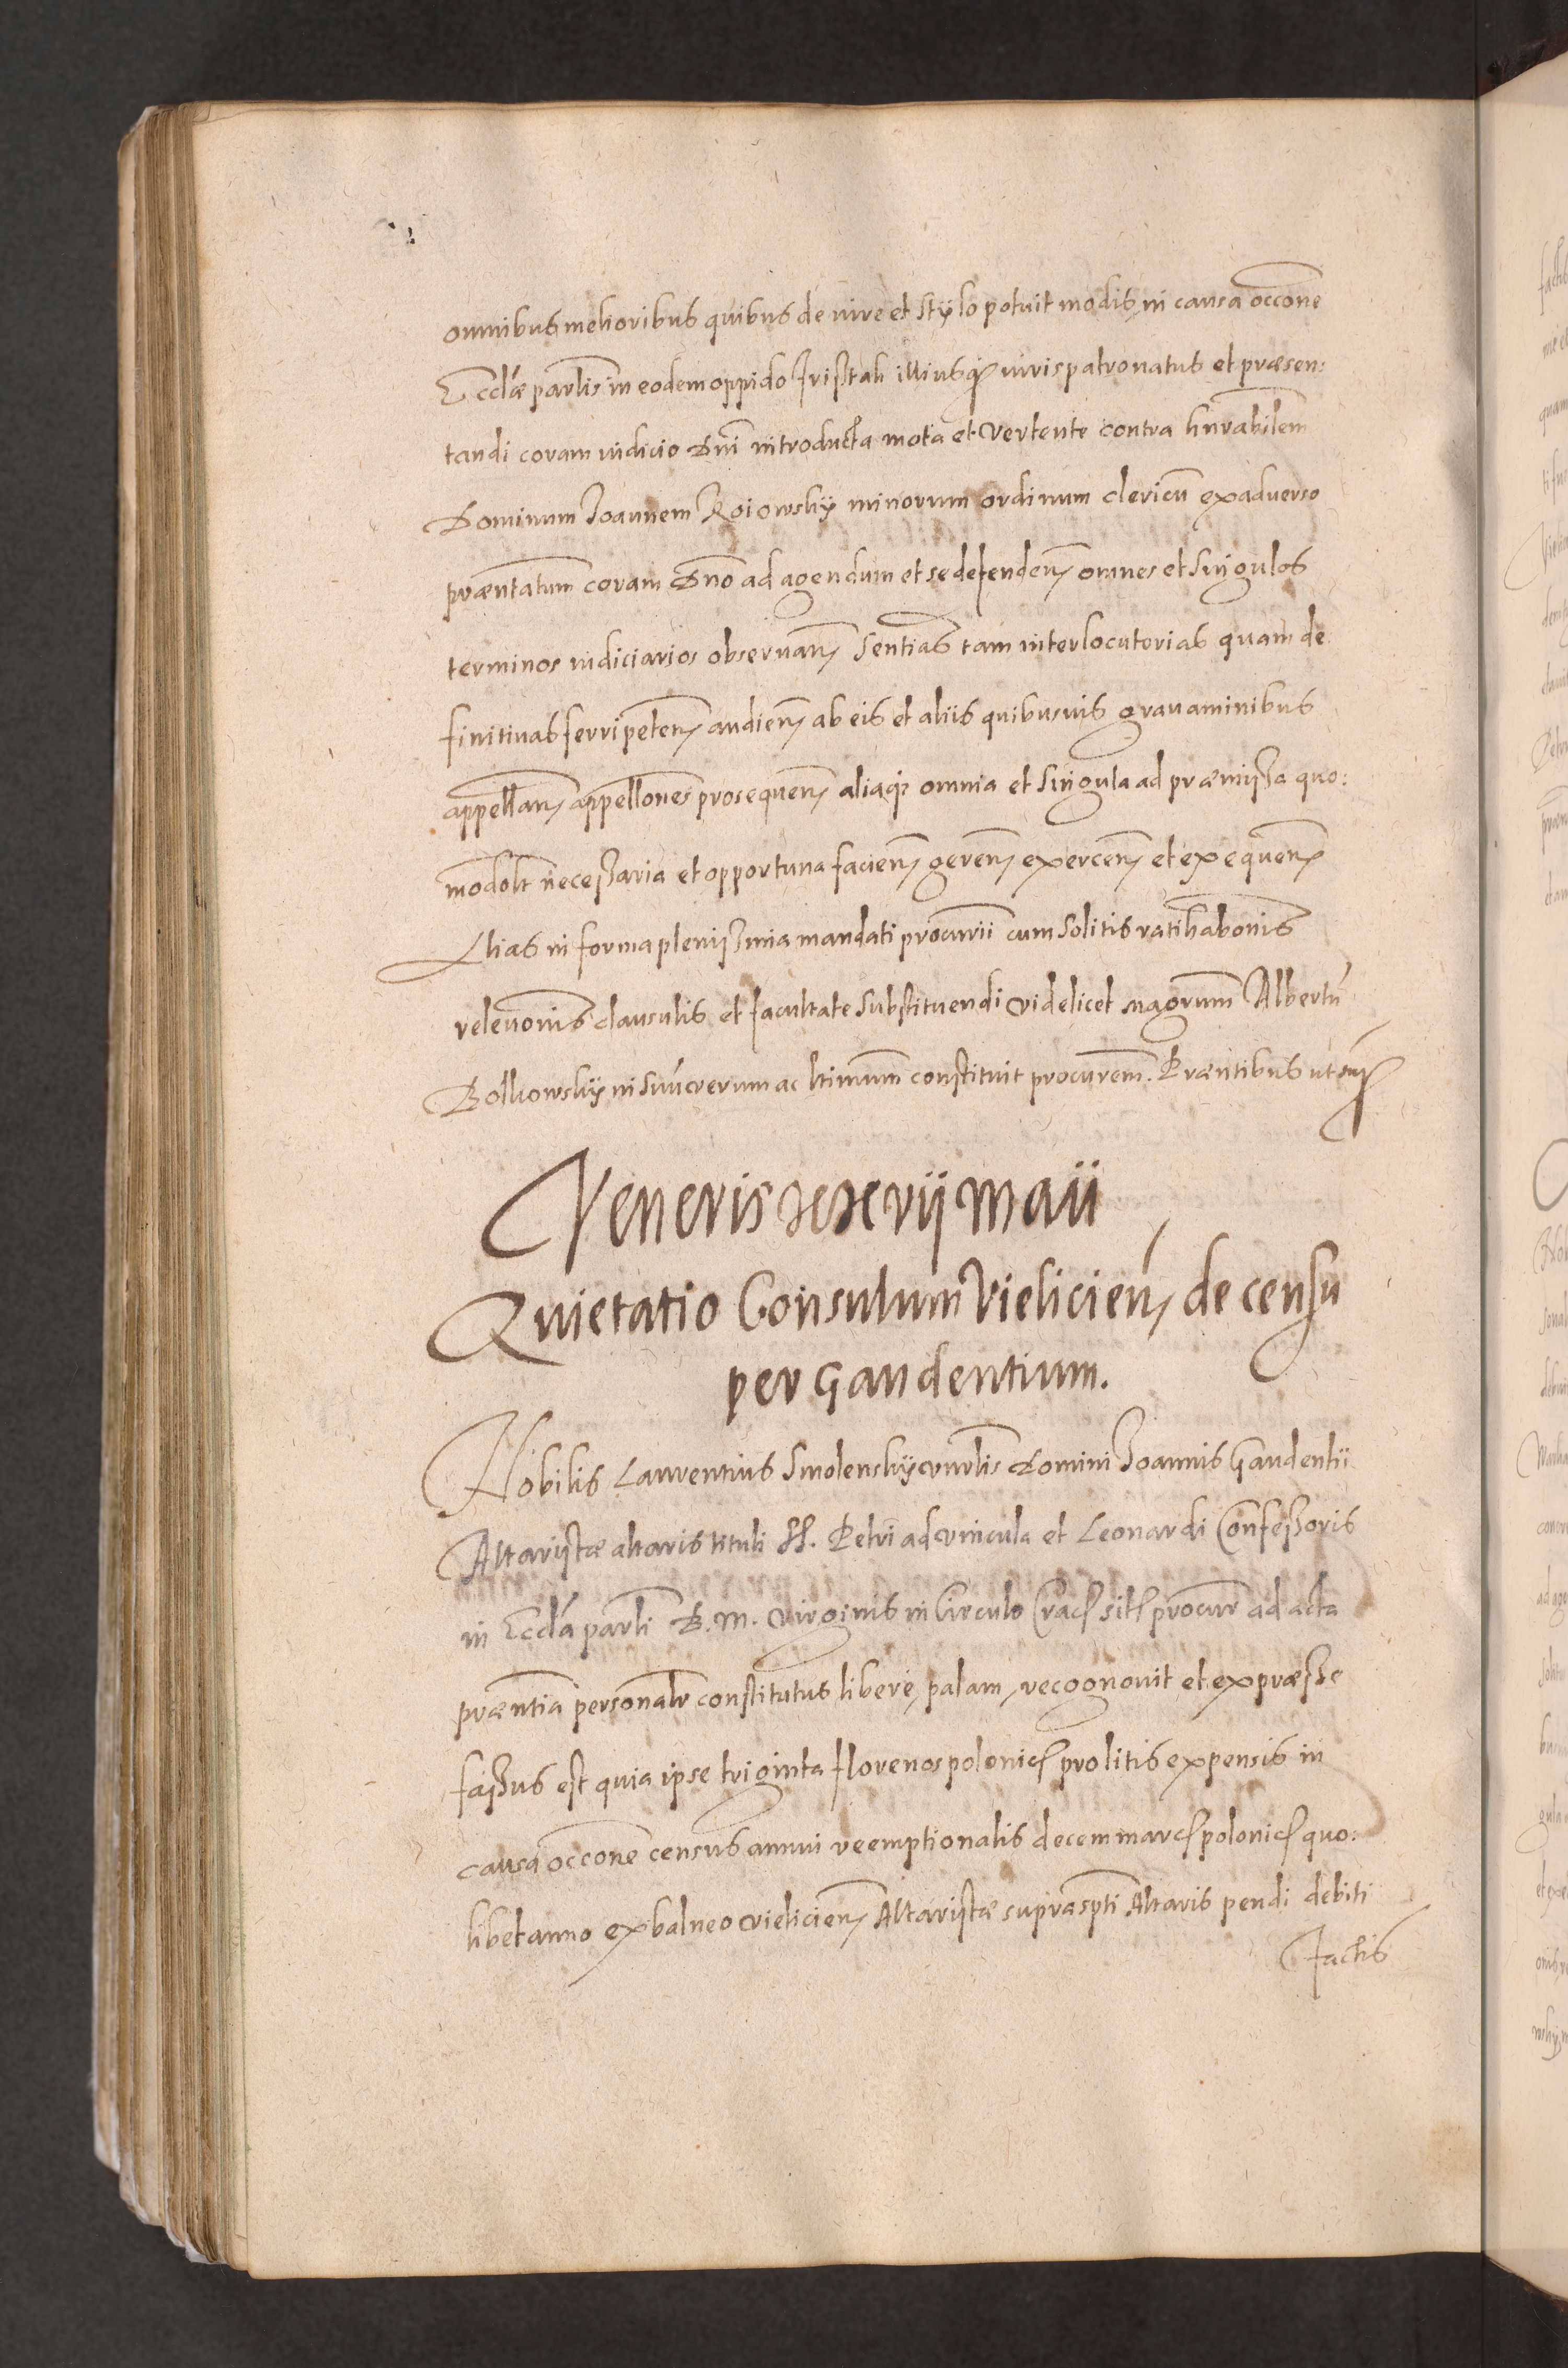 omnibus melioribus quibus de iure et stÿlo potuit modis, in causa occōne
Ecclāe parlīs in eodem oppido Fristak illiusq; iuris patronatus et præsen:
tandi coram iudicio Dnī introducta mota et vertente contra hnrābilem
Dominum Joannem Roiowskÿ minorum ordinum clericū ex adverso
præntatum coram Dno ad agendum et se defenden̄ omnes et singulos
terminos iudiciarios observan̄ sentīas tam interlocutorias quam de
finitivas ferri peten̄ audien̄ ab eis et aliis quibusvis gravaminibus
appellan̄ appellōnes prosequen̄ aliaq; omnia et singula ad præmissa quo:
modolt necessaria et opportuna facien̄ geren̄ exercen̄ et exequen̄
Alias in forma plenissima mandati procurīi cum solitis ratihabōnis
relevōnis clausulis et facultate substituendi videlicet magrum Albertū
Bolkowskÿ in suū verum ac ltimum constituit procurem. Præntibus ut supᷓ
Veneris xxvii Maii
Quietatio Consulum Vielicien̄ de censu
per Gaudentium.
Nobilis Laurentius Smolenskÿ vnrlis Domini Joannis Gaudentii
Altaristæ altaris tituli SS. Petri ad vincula et Leonardi Confessoris
in Ecclā parlī B. M. Virginis in Circulo Crac̄ sit̄ procur ad acta
præntia personalr constitutus libere, palam, recognovit et expræsse
fassus est quia ipse triginta florenos polonic̄ pro litis expensis in
causa occōne census annui reemptionalis decem marc̄ polonic̄ quo:
libet anno ex balneo vielicien̄ Altaristæ suprasptī Altaris pendi debiti
factis